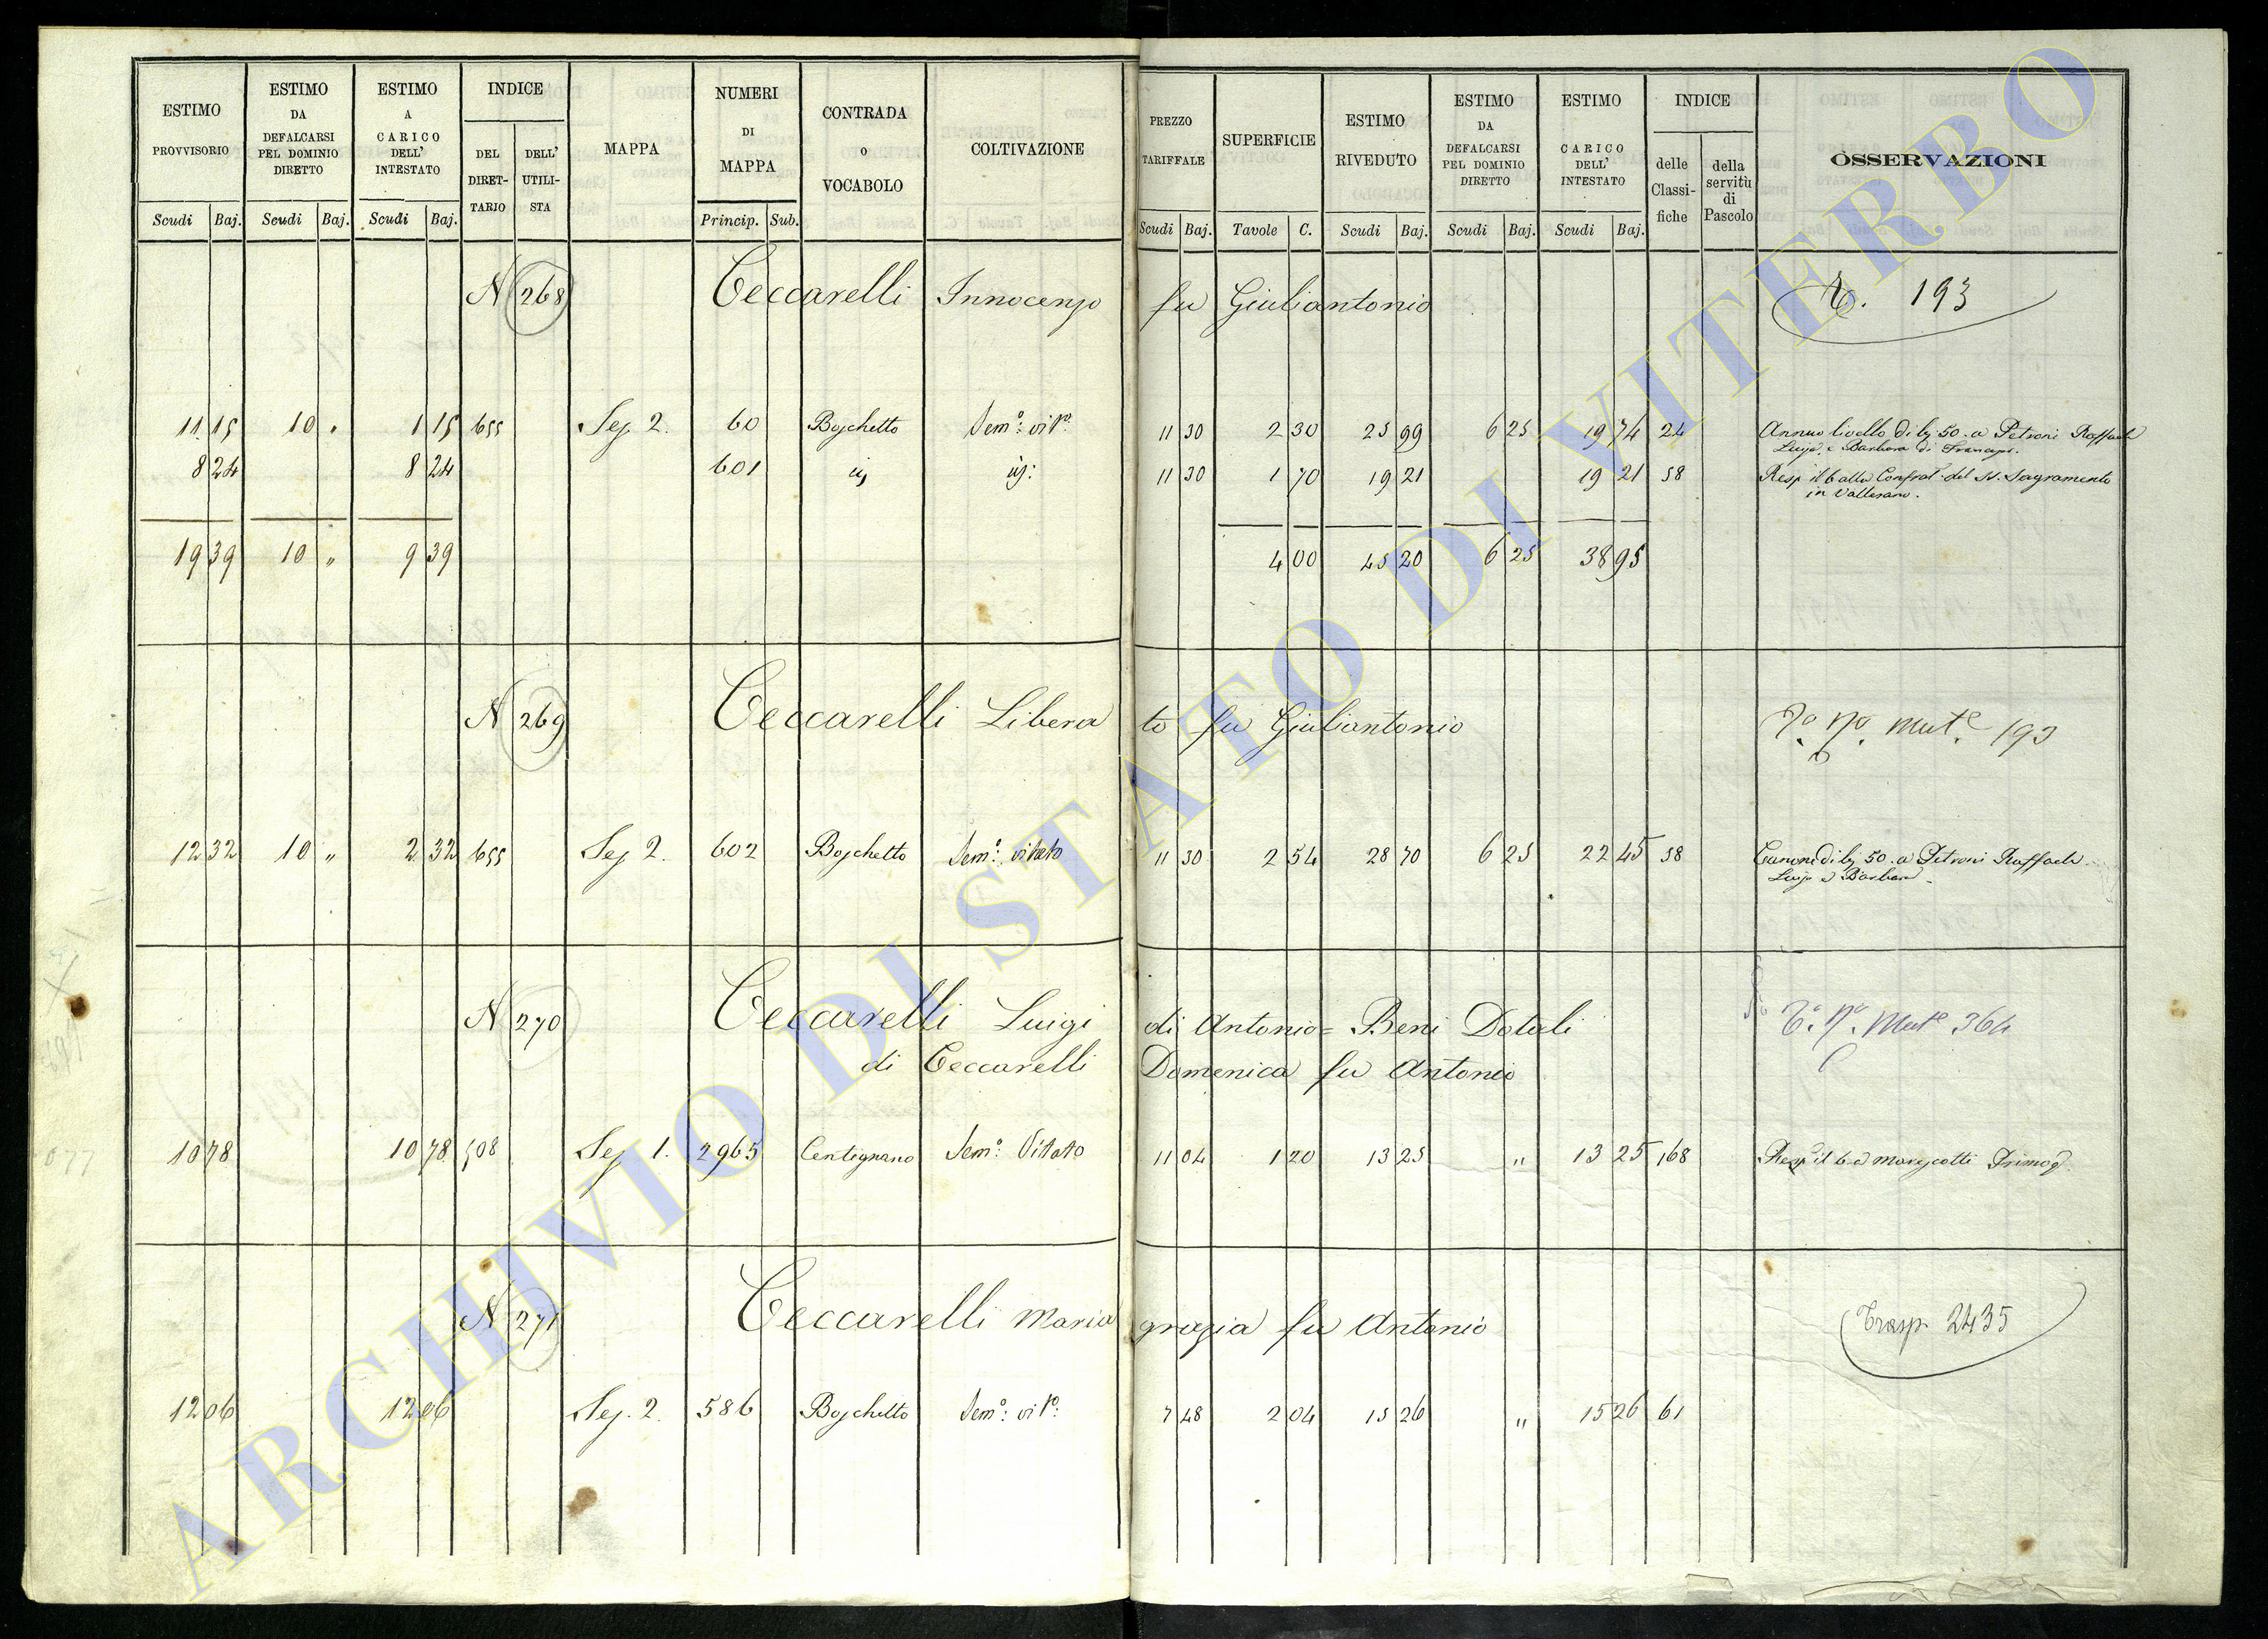 ESTIMO PROVVISORIO
ESTIMO DA DEFALCARSI PEL DOMINIO DIRETTO
ESTIMO A CARICO DELL' INTESTATO
INDICE
DEL DIRET-TARIO
DELL' UTILI-STA
MAPPA
NUMERI DI MAPPA
CONTRADA O VOCABOLO
COLTIVAZIONE
PREZZO TARIFFALE
SUPERFICIE
ESTIMO RIVEDUTO
ESTIMO DA DEFALCARSI PEL DOMINIO DIRETTO
ESTIMO CARICO DELL' INTESTATO
INDICE
delle Classi-fiche
della servitù di Pascolo
OSSERVAZIONI
Scudi Baj. Scudi Baj. Scudi Baj. Princip. Sub. Scudi Baj. Tavole C. Scudi Baj. Scudi Baj. Scudi Baj.
N 268 Ceccarelli Innocenzo fu Giuliantonio 193
11 15 10 " 1 15 655 Sez. 2. 60 Boschetto Sem.o vit.o 11 30 2 30 25 99 6 25 19 74 24 Annuo livello di bj 50. a Petroni Raffaele
Luigi e Barbara di Francesc.
8 24 8 24 601 id id: 11 30 1 70 19 21 19 21 58 Resp. il 6 alla Confrat. del SS. Sagramento
in Vallerano.
19 39 10 " 9 39 4 00 45 20 6 25 38 95
N 269 Ceccarelli Liberato fu Giuliantonio Mut.e 193
12 32 10 " 2 32 655 Sez 2. 602 Boschetto Sem.o vitato 11 30 2 54 28 70 6 25 22 45 58 Canone di bj 50. a Petroni Raffaele
Luigi e Barbara
N 270 Ceccarelli Luigi di Antonio = Beni Dotali Mut.e 364
di Ceccarelli Domenica fu Antonio
10 78 10 78 508 Sez 1. 2965 Centignano Sem.o Vitato 11 04 1 20 13 25 " 13 25 168 Resp. il 6 a Marescotti Primog.
N 271 Ceccarelli Mariagrazia fu Antonio Trasp 2435
12 06 12 06 Sez. 2. 586 Boschetto Sem.o vit.o 7 48 2 04 15 26 " 15 26 61
ARCHIVIO DI STATO DI VITERBO